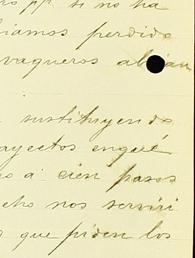 pp. si no ha
iamos perdido
vaqueros
sustituyendo
ayectos enqué
o á cien pasos
cho nos serviri
s que piden los